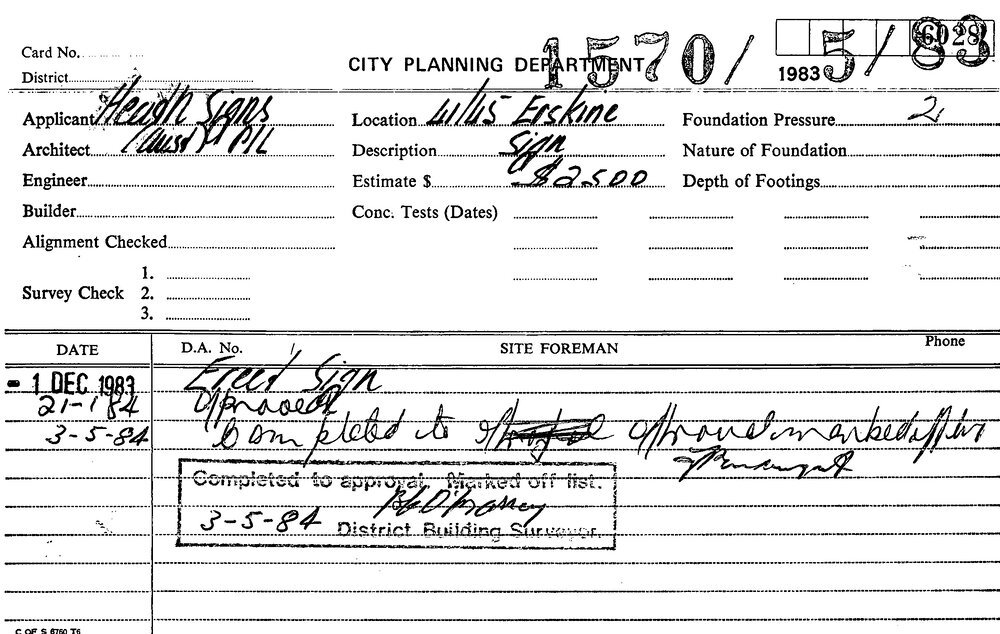 6028
1570/ 5/83
Card No.
CITY PLANNING DEPARTMENT
1983
District
Applicant Heath Signs Location 41/45 Erskine Foundation Pressure 2
Architect (Aust) P/L Description Sign Nature of Foundation
Engineer Estimate $ $2500 Depth of Footings
Builder Conc. Tests (Dates)
Alignment Checked
1.
Survey Check 2.
3.
DATE D.A. No. SITE FOREMAN Phone
- 1 DEC 1983 Erect Sign
21-1 84 Approved
3-5-84 Completed to approval marked off list
Completed to approval. Marked off list.
3-5-84 District Building Surveyor.
C OF S 6760 T6